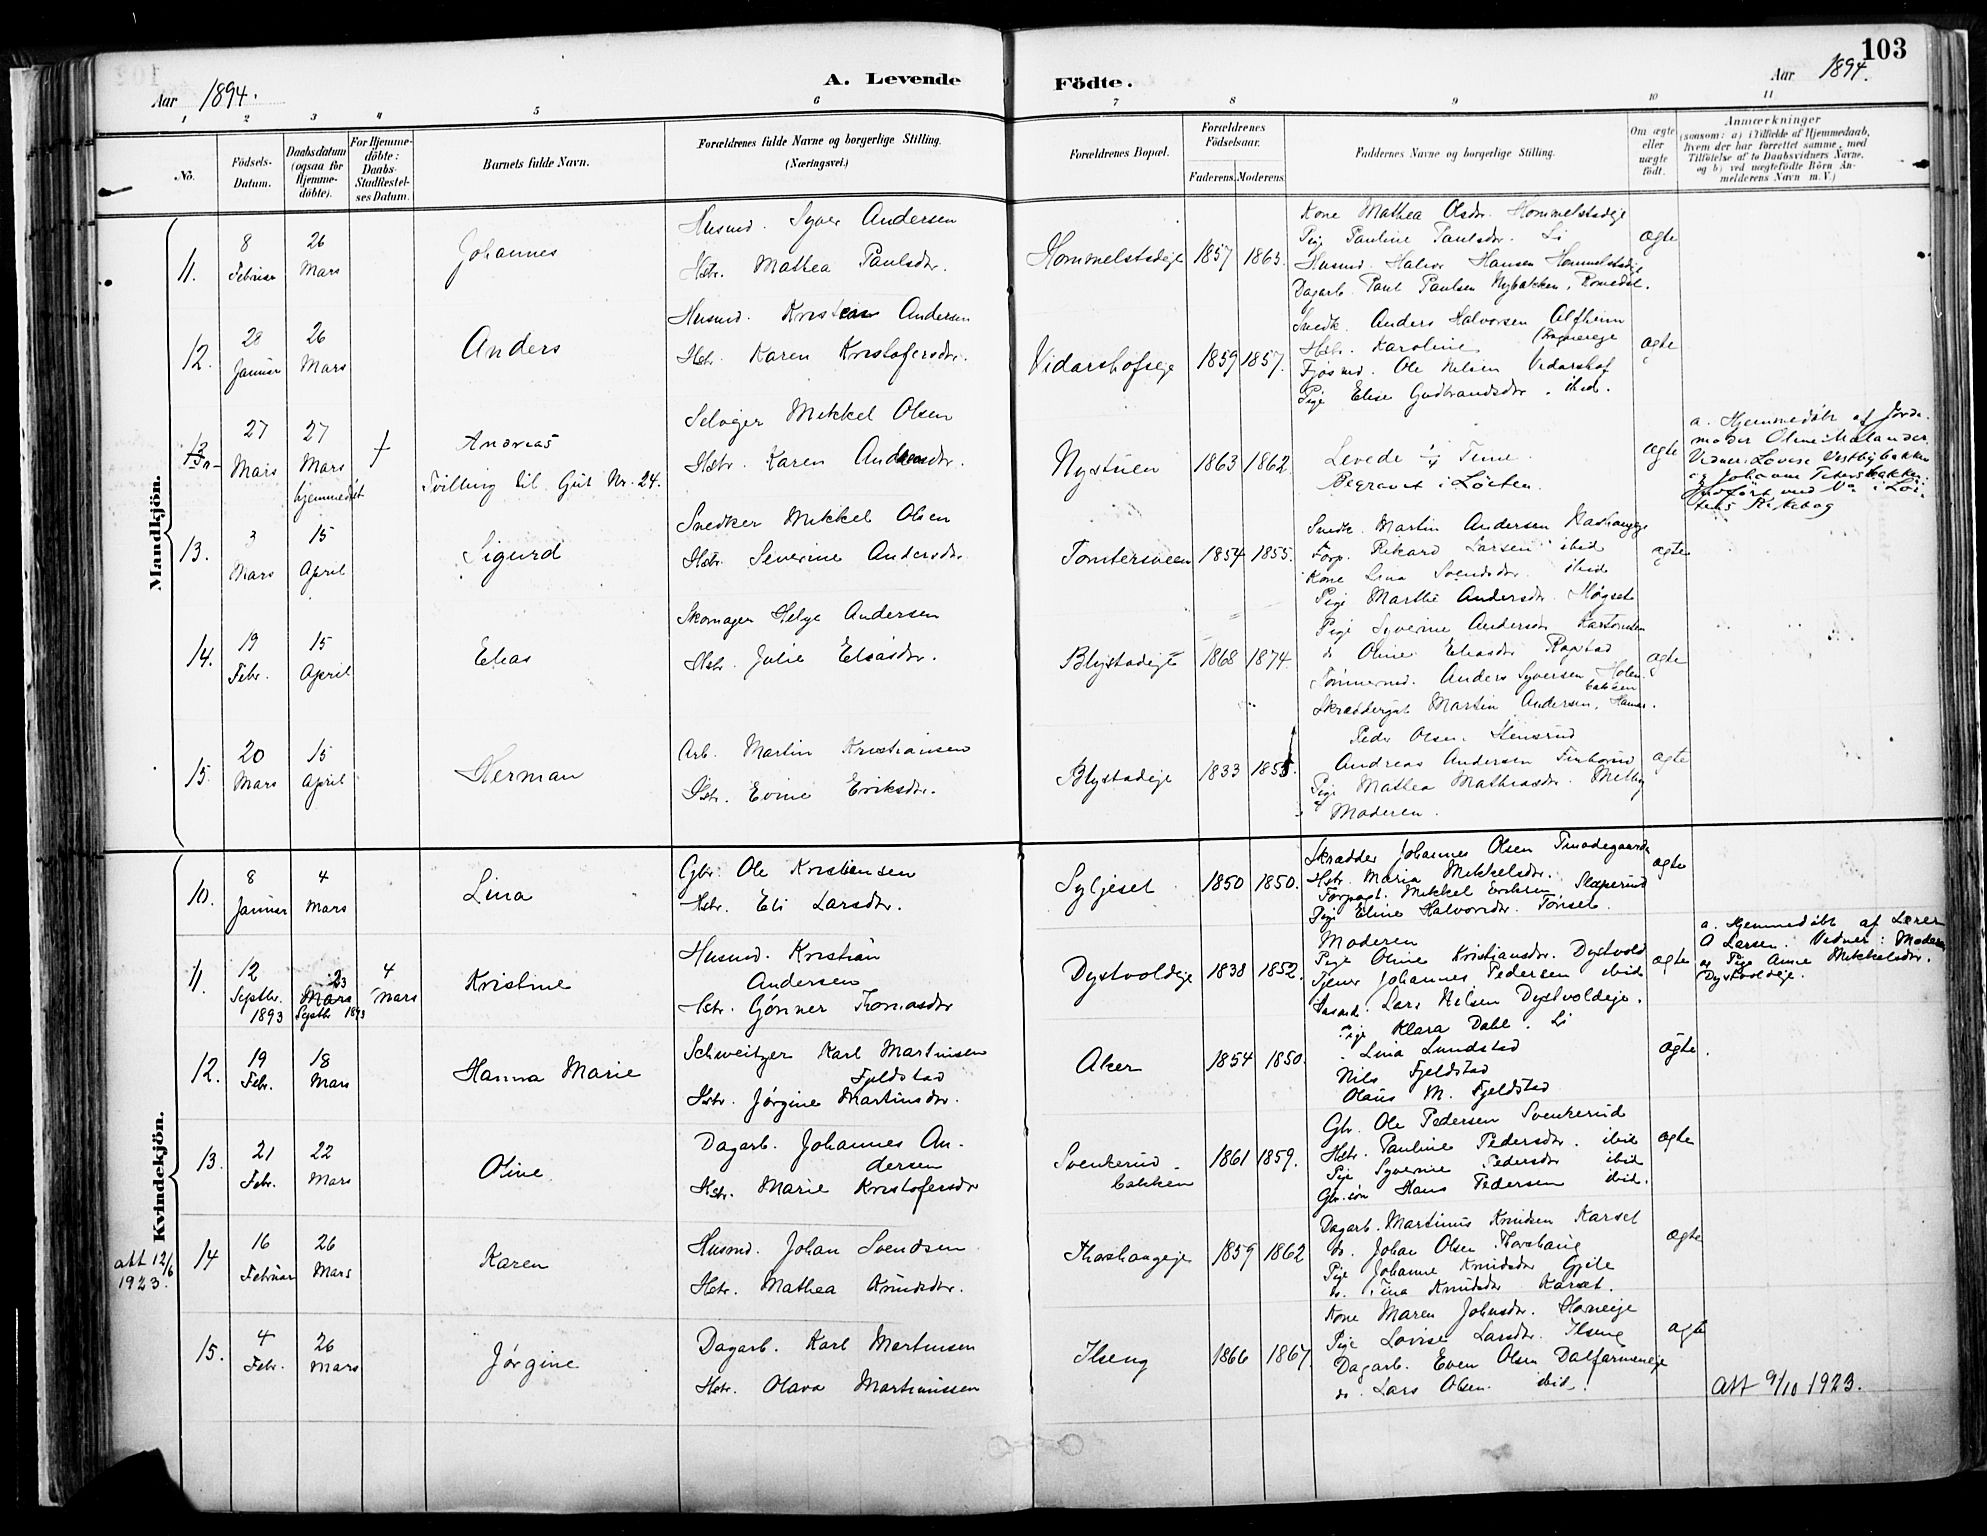 103
Aar 1894.
A. Levende Födte.
Aar 1894.
1 2 3 4 5 6 7 8 9 10 11
No.
Födsels-
Datum.
Daabsdatum
(ogsaa for
Hjemme-
döbte).
For Hjemme-
döbte:
Daabs-
Stadfestel-
ses Datum.
Barnets fulde Navn.
Forældrenes fulde Navne og borgerlige Stilling.
(Næringsvei.)
Forældrenes Bopæl.
Forældrenes
Födselsaar.
Faderens. Moderens.
Faddernes Navne og borgerlige Stilling.
Om ægte
eller
uægte
födt.
Anmærkninger
(saasom: a) i Tilfælde af Hjemmedaab,
hvem der har forrettet samme, med
Tilföielse af to Daabsvidners Navne,
og b) ved uægtefödte Börn An-
melderens Navn m. V.)
Mandkjön.
11.
8
Februar
26
Mars
Johannes
Husmd. Syver Andersen
Hstr. Mathea Paulsdr.
Hommelstadeje
1857 1863.
Kone Mathea Olsdr. Hommelstadeje
Pige Pauline Paulsdr. Li
Husmd. Halvor Hansen Hommelstadeje
Dagarb. Paul Paulsen Nybakken, Romedal.
ægte
12.
28
Januar
26
Mars
Anders
Husmd. Kristian Andersen
Hstr. Karen Kristofersdr.
Vidarshofeje
1859 1857.
Snedk. Anders Halvorsen Alfheim
Hstr. Karoline
Fjøsmd. Ole Nilsen Vidarshof
Pige Elise Gudbrandsdr. ibid.
ægte
27
Mars
27
Mars
hjemmedøbt
†
Andreas
Tvilling til Gut Nr. 24.
Selveger Mikkel Olsen
Hstr. Karen Andersdr.
Nystuen
1863 1862.
Levede 1/4 Time.
Begravet i Løiten.
ægte
a. Hjemmedøbt af Jorde-
moder Oline Malander
Vidner: Lovise Vestbybakken
og Johanne Petersbakken.
Indført med No i Løi-
tens Kirkebog
13.
3
Mars
15
April
Sigurd
Snedker Mikkel Olsen
Hstr. Severine Andersdr.
Tomtersveen
1854 1855.
Snedk. Martin Andersen
Forp. Rikard Larsen ibid
Kone Lina Svendsdr. ibid
Pige Marthe Andersdr. Høgset
ægte
14.
19
Febr.
15
April
Elias
Skomager Helge Andersen
Hstr. Julie Eliasdr.
Blystadeje
1868 1874.
Pige Syverine Andersdr
ds Oline Eliasdr Rogstad
Tømmermd. Anders Syversen Holen-
bakken
Skræddergut Martin Andersen, Hamar.
ægte
15.
20
Mars
15
April
Herman
Arb. Martin Kristiansen
Hstr. Evine Eriksdr.
Blystadeje
1833 1855.
Peder Olsen Stensrud
Andreas Andersen Finborud
Pige Mathea Mathiasdr. Melby
Moderen.
ægte
Kvindekjön.
10.
8
Januar
4
Mars
Lina
Gbr. Ole Kristiansen
Hstr. Eli Larsdr.
Syljeset
1850 1850.
Skrædder Johannes Olsen
Hstr. Maria Mikkelsdr.
Forpagt. Mikkel Eriksen Slæperud
Pige Eline Halvorsdr. Tønset.
ægte
11.
12
Septbr.
1893
23
Mars
Septbr 1893
4
Mars
Kristine
Husmd. Kristian
Andersen
Hstr. Gønner Tomasdr
Dystvoldeje
1838 1852.
Moderen
Pige Oline Kristiansdr. Dystvold
Tjener Johannes Pedersen ibid
Husmd. Lars Nilsen Dystvoldeje.
ægte
a. Hjemmedøbt af Lærer
O Larsen. Vidner: Moderen
og Pige Anne Mikkelsdr.
Dystvoldeje.
12.
19
Febr.
18
Mars
Hanna Marie
Schweitzer Karl Martinsen
Fjeldstad
Hstr. Jørgine Martinsdr.
Aker
1854 1850.
Pige Klara Dahl. Li
" Lina Lundstad
Nils Fjeldstad
Olaus M. Fjeldstad
ægte.
13.
21
Febr.
22
Mars
Oline
Dagarb. Johannes An-
dersen
Hstr. Marie Kristofersdr
Svenkerud-
bakken
1861 1859.
Gbr. Ole Pedersen Svenkerud
Hstr. Pauline Pedersdr. ibid
Pige Syverine Pedersdr ibid
Gbr.søn Hans Pedersen ibid.
ægte
att 12/6
1923.
14
16
Februar
26
Mars
Karen
Husmd. Johan Svendsen
Hstr. Mathea Knudsdr.
Thorshaugeje
1859 1862
Dagarb. Martinus Knudsen Karset
ds. Johan Olsen Thorshaug
Pige Johanne Knudsdr Gjile
ds. Tina Knudsdr Karset.
ægte
15.
4
Febr.
26
Mars
Jørgine
Dagarb. Karl Martinsen
Hstr. Olava Martinussen
Ilseng
1866 1867
Kone Maren Johnsdr. Horneije
Pige Lovise Larsdr. Ilseng
Dagarb. Even Olsen Dalfarmeneje
ds. Lars Olsen ibid.
ægte
Att 9/10 1923.